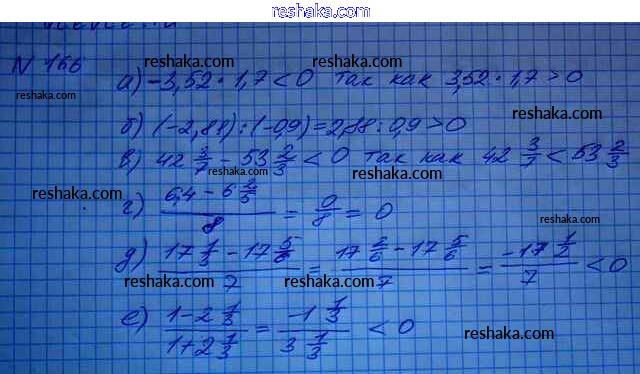 reshaka.com
N 166
а) -3,52 · 1,7 < 0 так как 3,52 · 1,7 > 0
б) (-2,88) : (-0,9) = 2,88 : 0,9 > 0
в) 42 3/7 - 53 2/3 < 0 так как 42 3/7 < 53 2/3
г) (6,4 - 6 2/5)/8 = 0/8 = 0
д) (17 1/3 - 17 5/6)/7 = (17 2/6 - 17 5/6)/7 = (-17 1/2)/7 < 0
е) (1 - 2 1/3)/(1 + 2 1/3) = (-1 1/3)/(3 1/3) < 0
reshaka.com
reshaka.com
reshaka.com
reshaka.com
reshaka.com
reshaka.com
reshaka.com
reshaka.com
reshaka.com
reshaka.com
reshaka.com
reshaka.com
reshaka.com